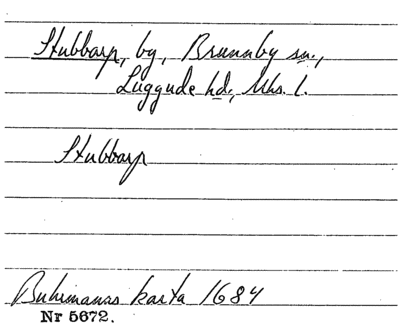 Stubbarp, by, Brunnby sn.,
Luggude hd., Mhs. l.
Stubbarp
Buhrmanns karta 1684
Nr 5672.